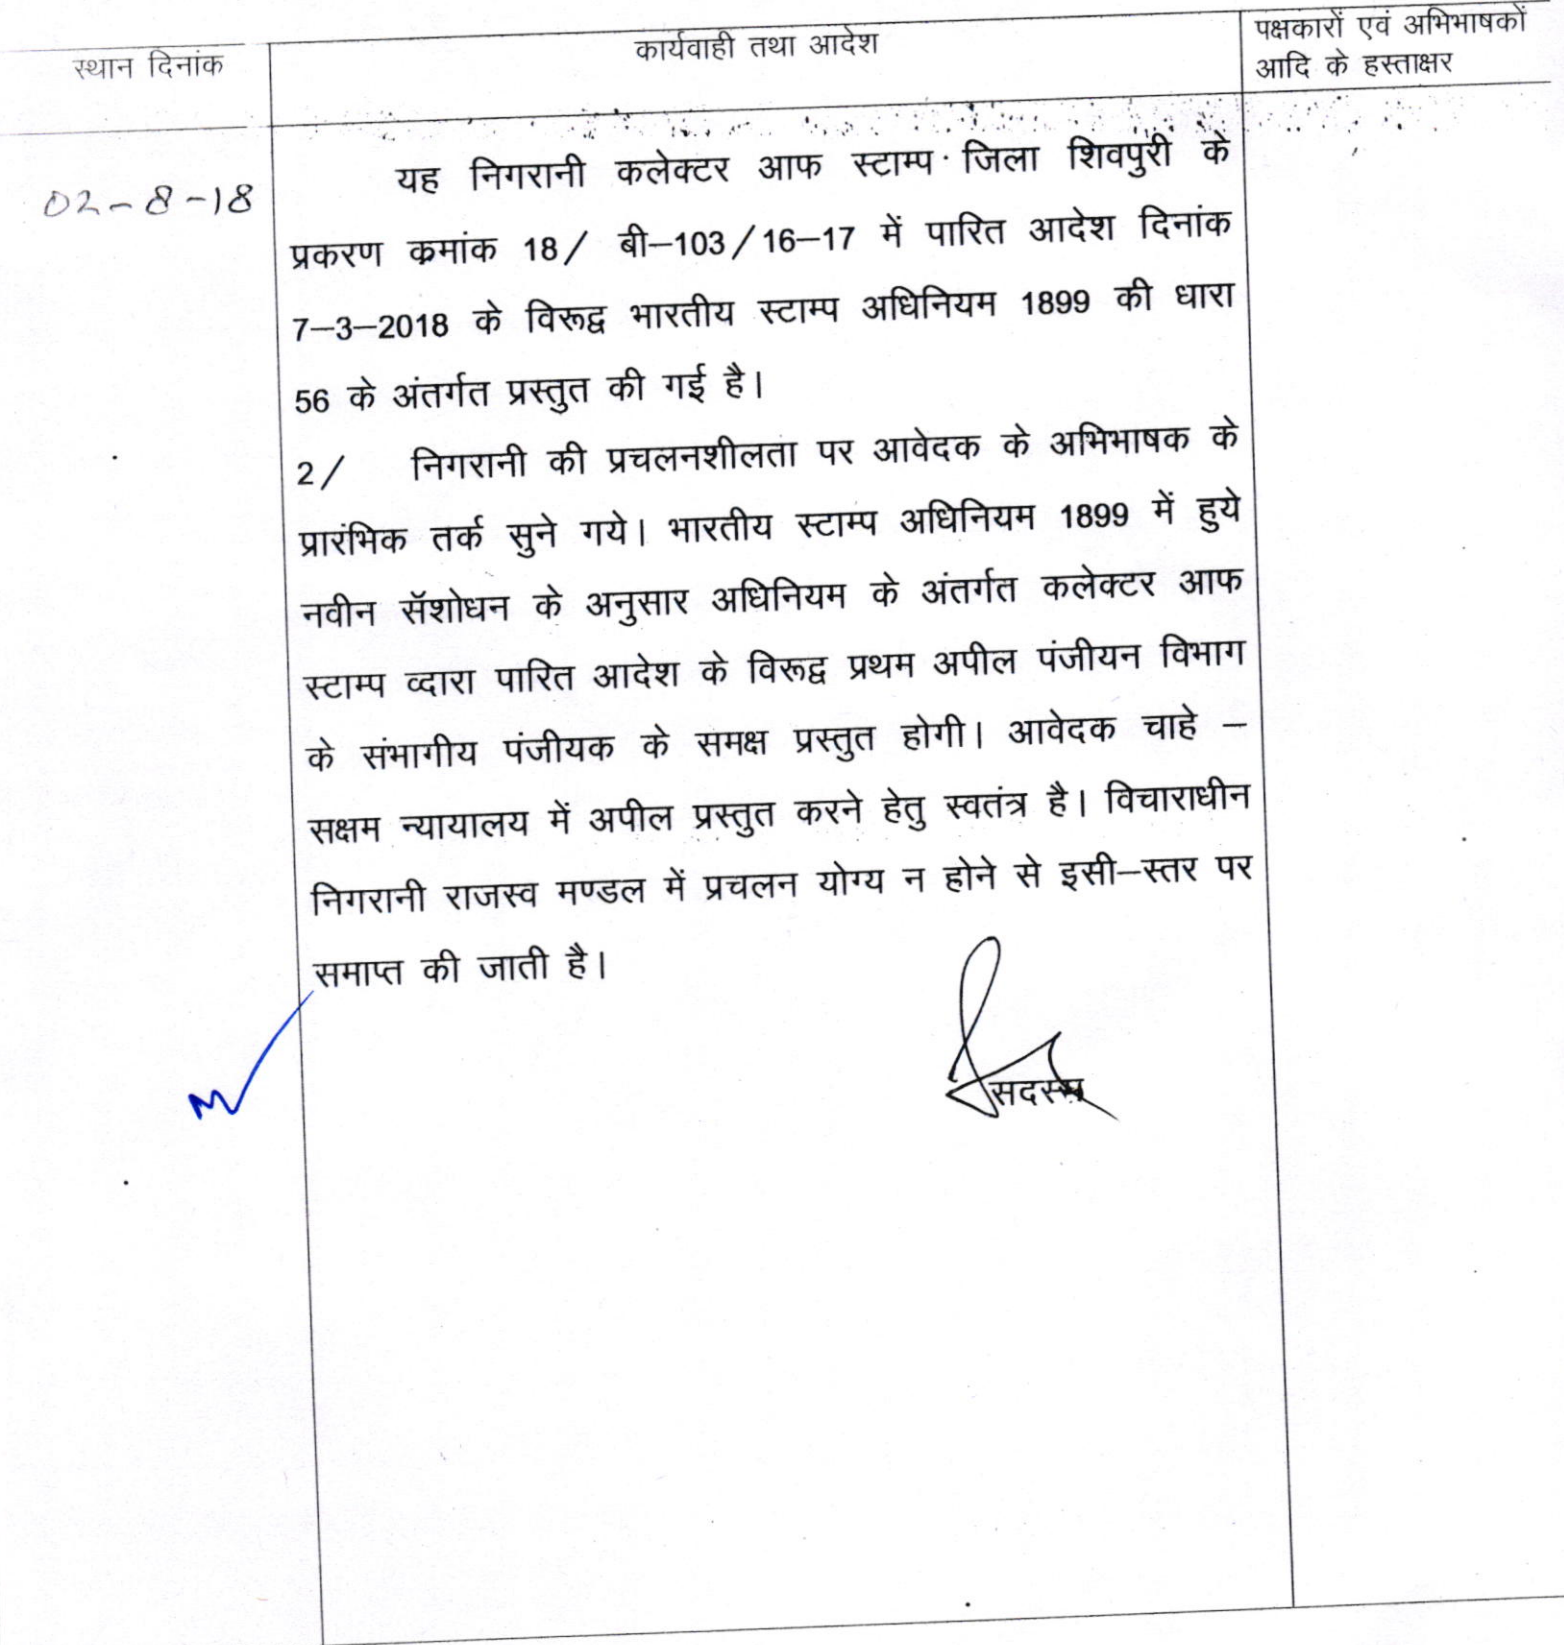 स्थान दिनांक
कार्यवाही तथा आदेश
पक्षकारों एवं अभिभाषकों
आदि के हस्ताक्षर
02-8-18
यह निगरानी कलेक्टर आफ स्टाम्प जिला शिवपुरी के
प्रकरण कमांक 18/ बी–103/16–17 में पारित आदेश दिनांक
7–3–2018 के विरूद्व भारतीय स्टाम्प अधिनियम 1899 की धारा
56 के अंतर्गत प्रस्तुत की गई है।
2/ निगरानी की प्रचलनशीलता पर आवेदक के अभिभाषक के
प्रारंभिक तर्क सुने गये। भारतीय स्टाम्प अधिनियम 1899 में हुये
नवीन सॅशोधन के अनुसार अधिनियम के अंतर्गत कलेक्टर आफ
स्टाम्प व्दारा पारित आदेश के विरूद्व प्रथम अपील पंजीयन विभाग
के संभागीय पंजीयक के समक्ष प्रस्तुत होगी। आवेदक चाहे –
सक्षम न्यायालय में अपील प्रस्तुत करने हेतु स्वतंत्र है। विचाराधीन
निगरानी राजस्व मण्डल में प्रचलन योग्य न होने से इसी–स्तर पर
समाप्त की जाती है।
सदस्य